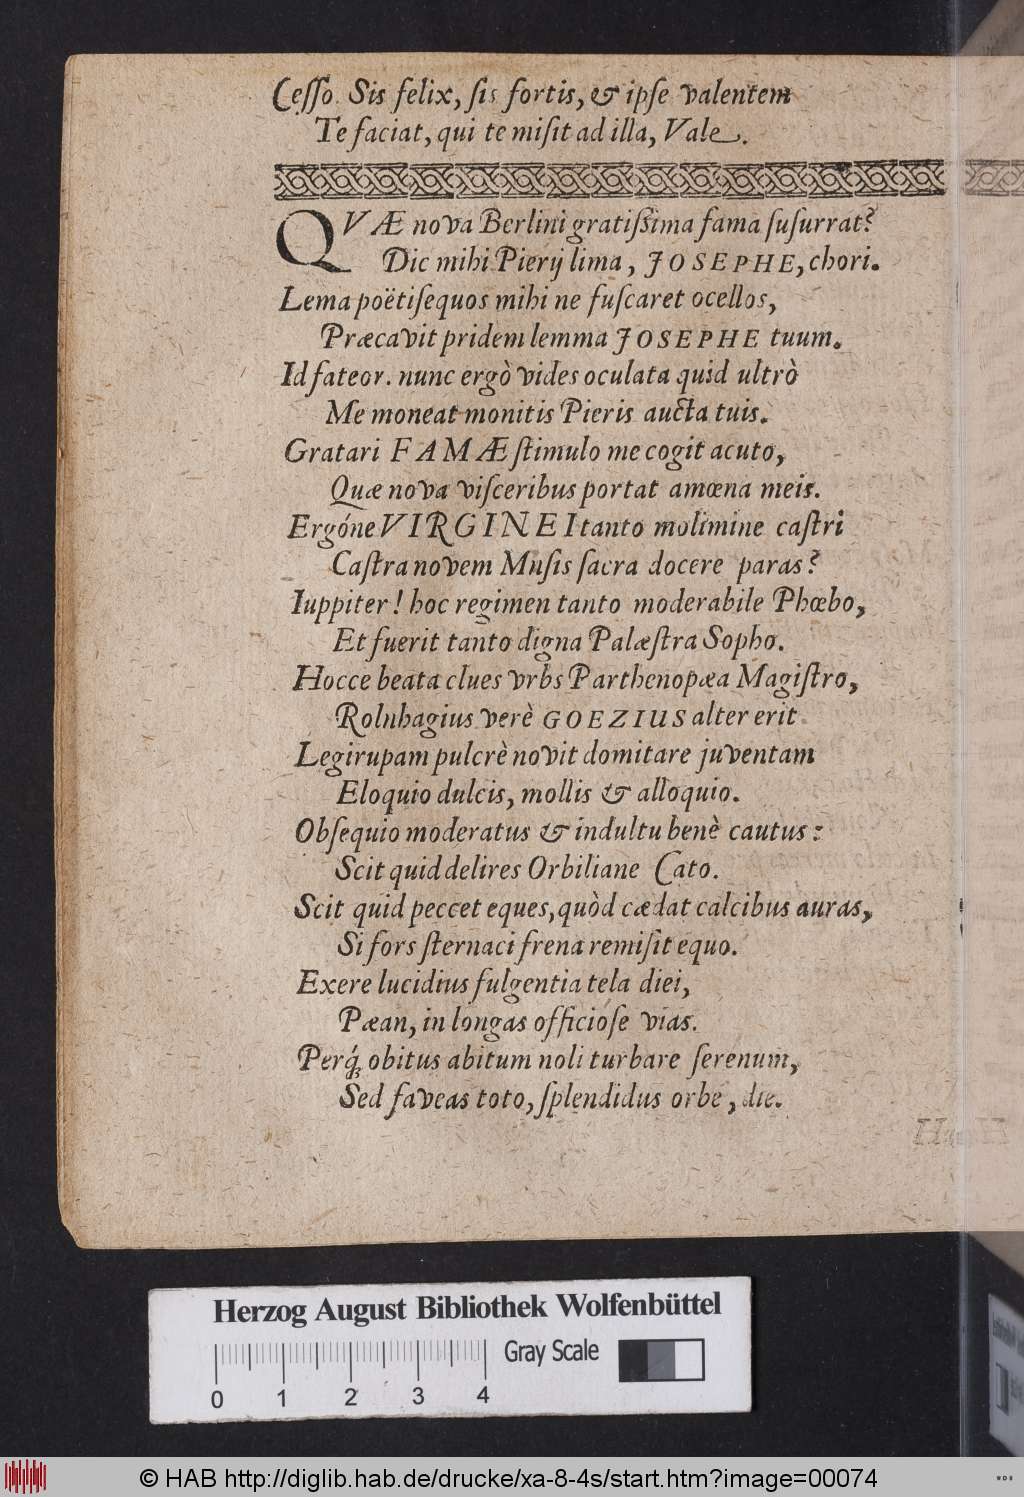 Ceſſo. Sis felix, ſis fortis, & ipſe valentem
Te faciat, qui te miſit ad illa, Vale.
QVÆ nova Berlini gratiſſima fama ſuſurrat?
Dic mihi Pierij lima, JOSEPHE, chori.
Lema poëtiſequos mihi ne fuſcaret ocellos,
Præcavit pridem lemma JOSEPHE tuum.
Id fateor. nunc ergò vides oculata quid ultrò
Me moneat monitis Pieris aucta tuis.
Gratari FAMÆ ſtimulo me cogit acuto,
Quæ nova viſceribus portat amœna meis.
Ergóne VIRGINEI tanto molimine caſtri
Caſtra novem Muſis ſacra docere paras?
Iuppiter! hoc regimen tanto moderabile Phœbo,
Et fuerit tanto digna Palæſtra Sopho.
Hocce beata clues vrbs Parthenopæa Magiſtro,
Rolnhagius verè GOEZIUS alter erit.
Legirupam pulcrè novit domitare juventam
Eloquio dulcis, mollis & alloquio.
Obſequio moderatus & indultu benè cautus:
Scit quid delires Orbiliane Cato.
Scit quid peccet eques, quòd cædat calcibus auras,
Si fors ſternaci frena remiſit equo.
Exere lucidius fulgentia tela diei,
Pæan, in longas officióſe vias.
Perq́; obitus abitum noli turbare ſerenum,
Sed faveas toto, ſplendidus orbe, die.
Herzog August Bibliothek Wolfenbüttel
Gray Scale
0 1 2 3 4
© HAB http://diglib.hab.de/drucke/xa-8-4s/start.htm?image=00074